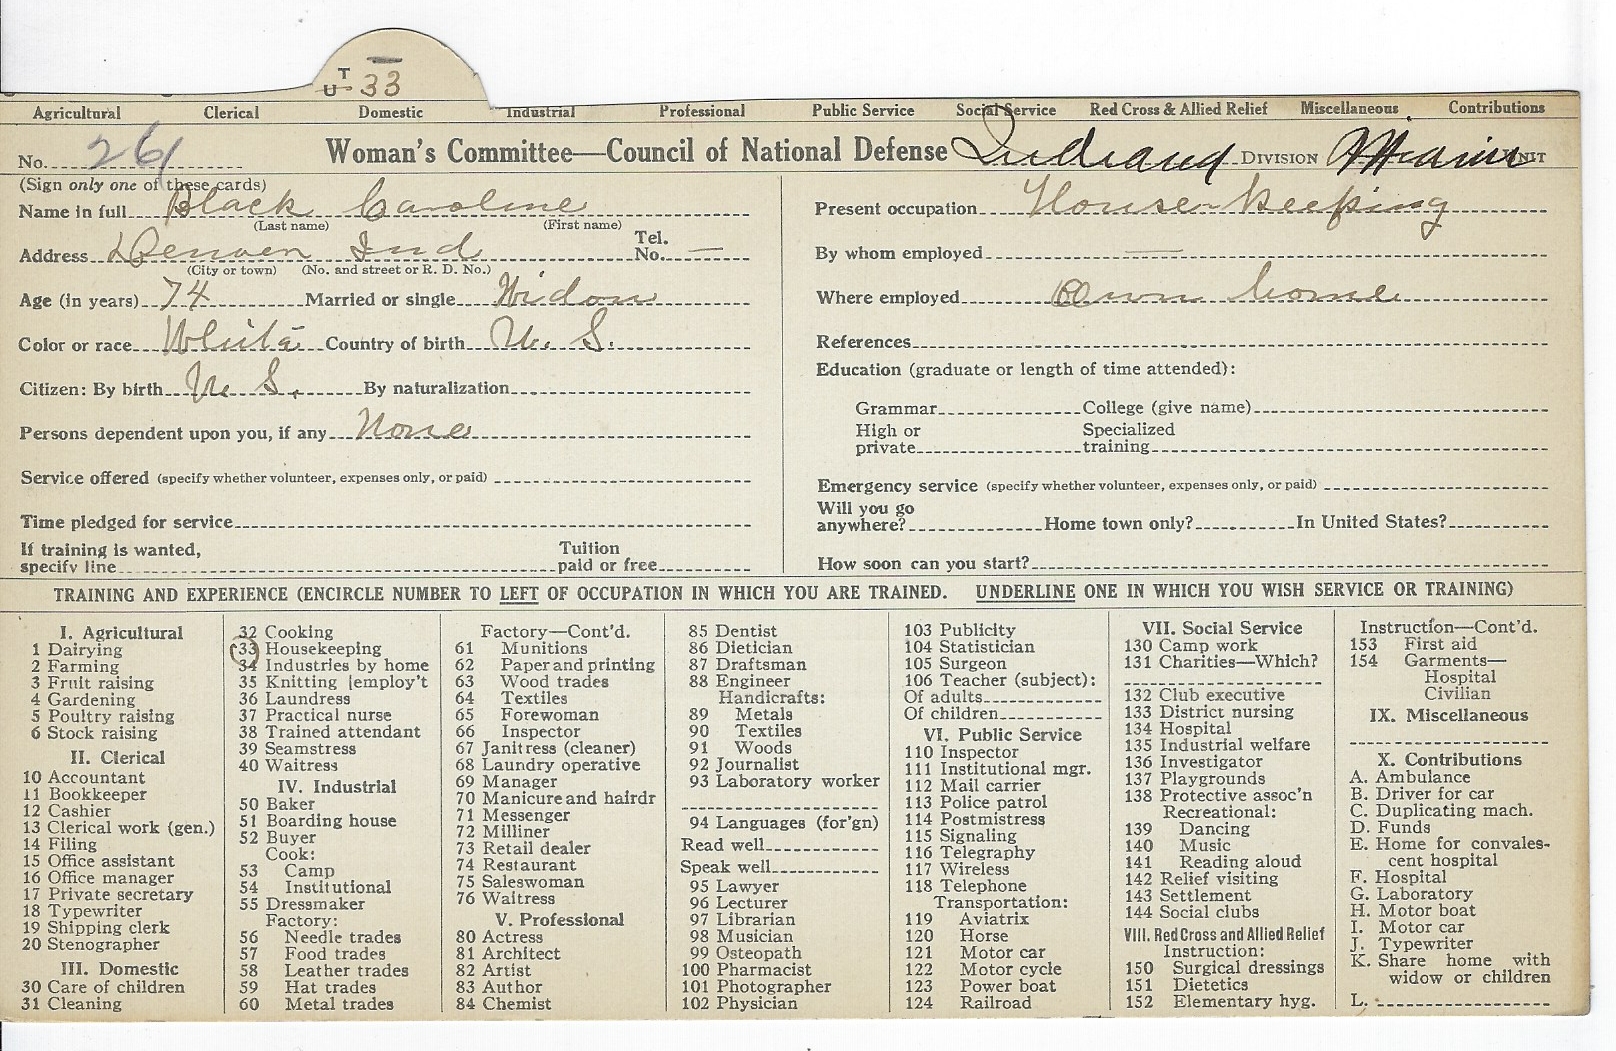 T
U 33
Agricultural Clerical Domestic Industrial Professional Public Service Social Service Red Cross & Allied Relief Miscellaneous Contributions
No. 261 Woman's Committee—Council of National Defense Indiana DIVISION Miami UNIT
(Sign only one of these cards)
Name in full Black Caroline
(Last name) (First name)
Address Denver Ind Tel. No. —
(City or town) (No. and street or R. D. No.)
Age (in years) 74 Married or single Widow
Color or race White Country of birth U. S.
Citizen: By birth U. S. By naturalization
Persons dependent upon you, if any None
Service offered (specify whether volunteer, expenses only, or paid)
Time pledged for service
If training is wanted, specify line Tuition paid or free
Present occupation House-keeping
By whom employed —
Where employed Own home
References
Education (graduate or length of time attended):
Grammar College (give name)
High or private Specialized training
Emergency service (specify whether volunteer, expenses only, or paid)
Will you go anywhere? Home town only? In United States?
How soon can you start?
TRAINING AND EXPERIENCE (ENCIRCLE NUMBER TO LEFT OF OCCUPATION IN WHICH YOU ARE TRAINED. UNDERLINE ONE IN WHICH YOU WISH SERVICE OR TRAINING)
I. Agricultural
1 Dairying
2 Farming
3 Fruit raising
4 Gardening
5 Poultry raising
6 Stock raising
II. Clerical
10 Accountant
11 Bookkeeper
12 Cashier
13 Clerical work (gen.)
14 Filing
15 Office assistant
16 Office manager
17 Private secretary
18 Typewriter
19 Shipping clerk
20 Stenographer
III. Domestic
30 Care of children
31 Cleaning
32 Cooking
33 Housekeeping
34 Industries by home
35 Knitting [employ't
36 Laundress
37 Practical nurse
38 Trained attendant
39 Seamstress
40 Waitress
IV. Industrial
50 Baker
51 Boarding house
52 Buyer
Cook:
53 Camp
54 Institutional
55 Dressmaker
Factory:
56 Needle trades
57 Food trades
58 Leather trades
59 Hat trades
60 Metal trades
Factory—Cont'd.
61 Munitions
62 Paper and printing
63 Wood trades
64 Textiles
65 Forewoman
66 Inspector
67 Janitress (cleaner)
68 Laundry operative
69 Manager
70 Manicure and hairdr
71 Messenger
72 Milliner
73 Retail dealer
74 Restaurant
75 Saleswoman
76 Waitress
V. Professional
80 Actress
81 Architect
82 Artist
83 Author
84 Chemist
85 Dentist
86 Dietician
87 Draftsman
88 Engineer
Handicrafts:
89 Metals
90 Textiles
91 Woods
92 Journalist
93 Laboratory worker
94 Languages (for'gn)
Read well
Speak well
95 Lawyer
96 Lecturer
97 Librarian
98 Musician
99 Osteopath
100 Pharmacist
101 Photographer
102 Physician
103 Publicity
104 Statistician
105 Surgeon
106 Teacher (subject):
Of adults
Of children
VI. Public Service
110 Inspector
111 Institutional mgr.
112 Mail carrier
113 Police patrol
114 Postmistress
115 Signaling
116 Telegraphy
117 Wireless
118 Telephone
Transportation:
119 Aviatrix
120 Horse
121 Motor car
122 Motor cycle
123 Power boat
124 Railroad
VII. Social Service
130 Camp work
131 Charities—Which?
132 Club executive
133 District nursing
134 Hospital
135 Industrial welfare
136 Investigator
137 Playgrounds
138 Protective assoc'n
Recreational:
139 Dancing
140 Music
141 Reading aloud
142 Relief visiting
143 Settlement
144 Social clubs
VIII. Red Cross and Allied Relief
Instruction:
150 Surgical dressings
151 Dietetics
152 Elementary hyg.
Instruction—Cont'd.
153 First aid
154 Garments—
Hospital
Civilian
IX. Miscellaneous
X. Contributions
A. Ambulance
B. Driver for car
C. Duplicating mach.
D. Funds
E. Home for convales-
cent hospital
F. Hospital
G. Laboratory
H. Motor boat
I. Motor car
J. Typewriter
K. Share home with
widow or children
L.